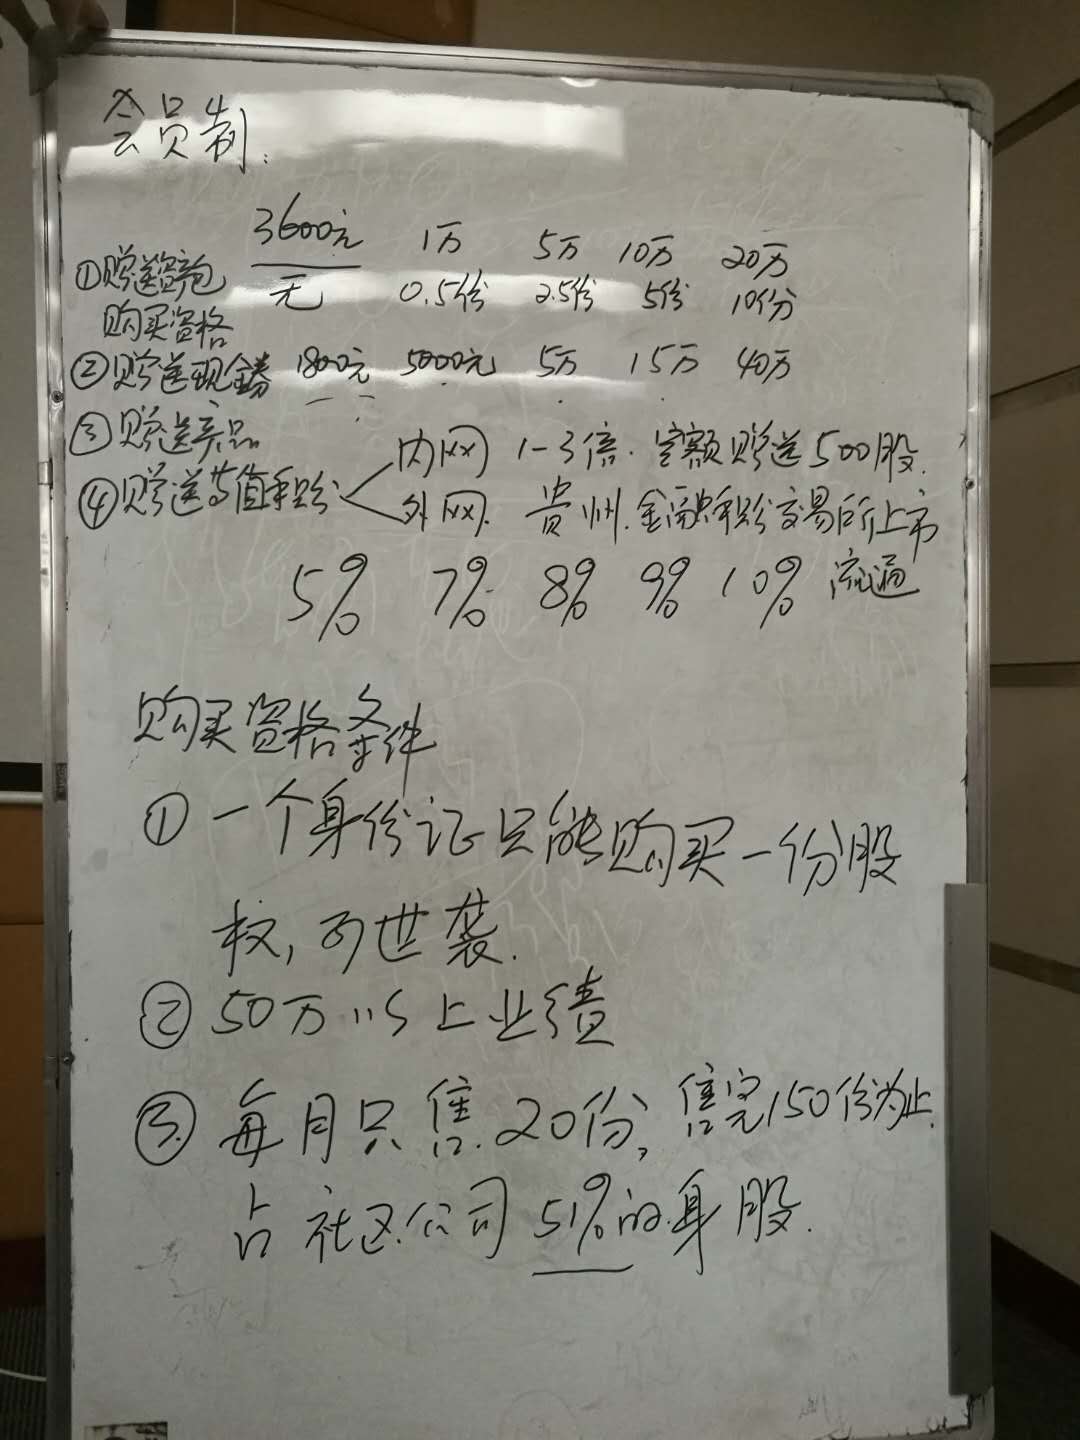 会员制:
3600元 1万 5万 10万 20万
①赠送 无 0.5份 2.5份 5份 10份
购买资格
②赠送现金券 1800元 5000元 5万 15万 40万
③赠送产品
④赠送等值积分 内网 1-3倍.定额赠送500股.
外网.贵州.金融积分交易所上市
5% 7% 8% 9% 10% 流通
购买资格条件
①一个身份证只能购买一份股
权,可世袭.
②50万以上业绩
③每月只售.20份,售完150份为止.
占社区公司51%的身股.